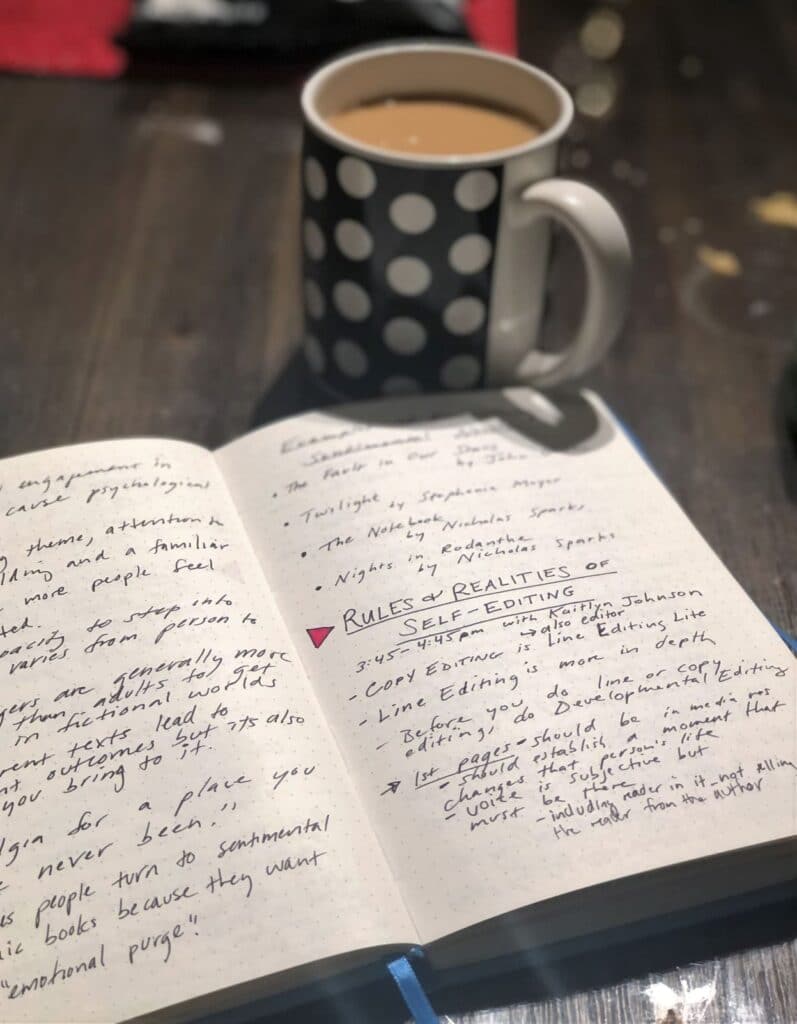 engagement in
cause psychological
theme, attention to
and a familiar
more people feel
to step into
varies from person to
are generally more
than adults to get
in fictional worlds
texts lead to
outcomes but its also
you bring to it.
for a place you
never been."
people turn to sentimental
books because they want
"emotional purge".
Sentimental
• The Fault in Our Stars
by John
• Twilight by Stephenie Meyer
• The Notebook
by Nicholas Sparks
• Nights in Rodanthe
by Nicholas Sparks
RULES & REALITIES OF
SELF-EDITING
3:45-4:45pm with Kaitlyn Johnson
→ also editor
- COPY EDITING is Line Editing Lite
- Line Editing is more in depth
- Before you do line or copy
editing, do Developmental Editing
→ 1st pages - should be in media res
- should establish a moment that
changes that person's life
- voice is subjective but
must be there
- including reader in it - not telling
the reader from the author